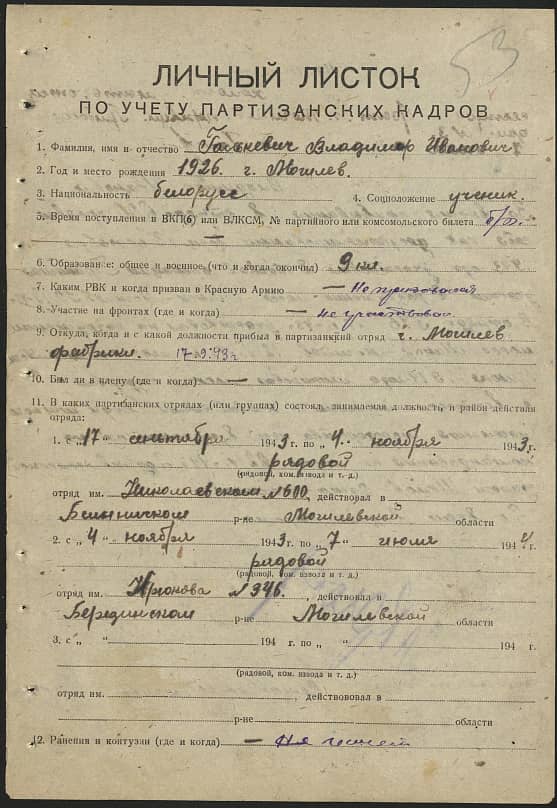 53
ЛИЧНЫЙ ЛИСТОК
ПО УЧЕТУ ПАРТИЗАНСКИХ КАДРОВ
1. Фамилия, имя и отчество Гатькевич Владимир Иванович
2. Год и место рождения 1926. г. Могилев.
3. Национальность белорусс 4. Соцположение ученик.
5. Время поступления в ВКП(б) или ВЛКСМ, № партийного или комсомольского билета б/п.
—
6. Образование: общее и военное (что и когда окончил) 9 кл.
7. Каким РВК и когда призван в Красную Армию — Не призывался
8. Участие на фронтах (где и когда) — не участвовал
9. Откуда, когда и с какой должности прибыл в партизанский отряд г. Могилев
фабрики. 17.9.43 г.
10. Был ли в плену (где и когда) —
11. В каких партизанских отрядах (или группах) состоял, занимаемая должность и район действия
отряда:
1. с „17" сентября 1943 г. по „4" ноября 1943 г.
рядовой
(рядовой, ком. взвода и т. д.)
отряд им. Николаевском №600, действовал в
Белыничском р-не Могилевской области
2. с „4" ноября 1943 г. по „7" июля 1944 г.
рядовой
(рядовой, ком. взвода и т. д.)
отряд им. №346, действовал в
Березинском р-не Могилевской области
3. с „ " 194 г. по „ " 194 г.
(рядовой, ком. взвода и т. д.)
отряд им. , действовал в
р-не области
12. Ранения и контузии (где и когда) — не имеет